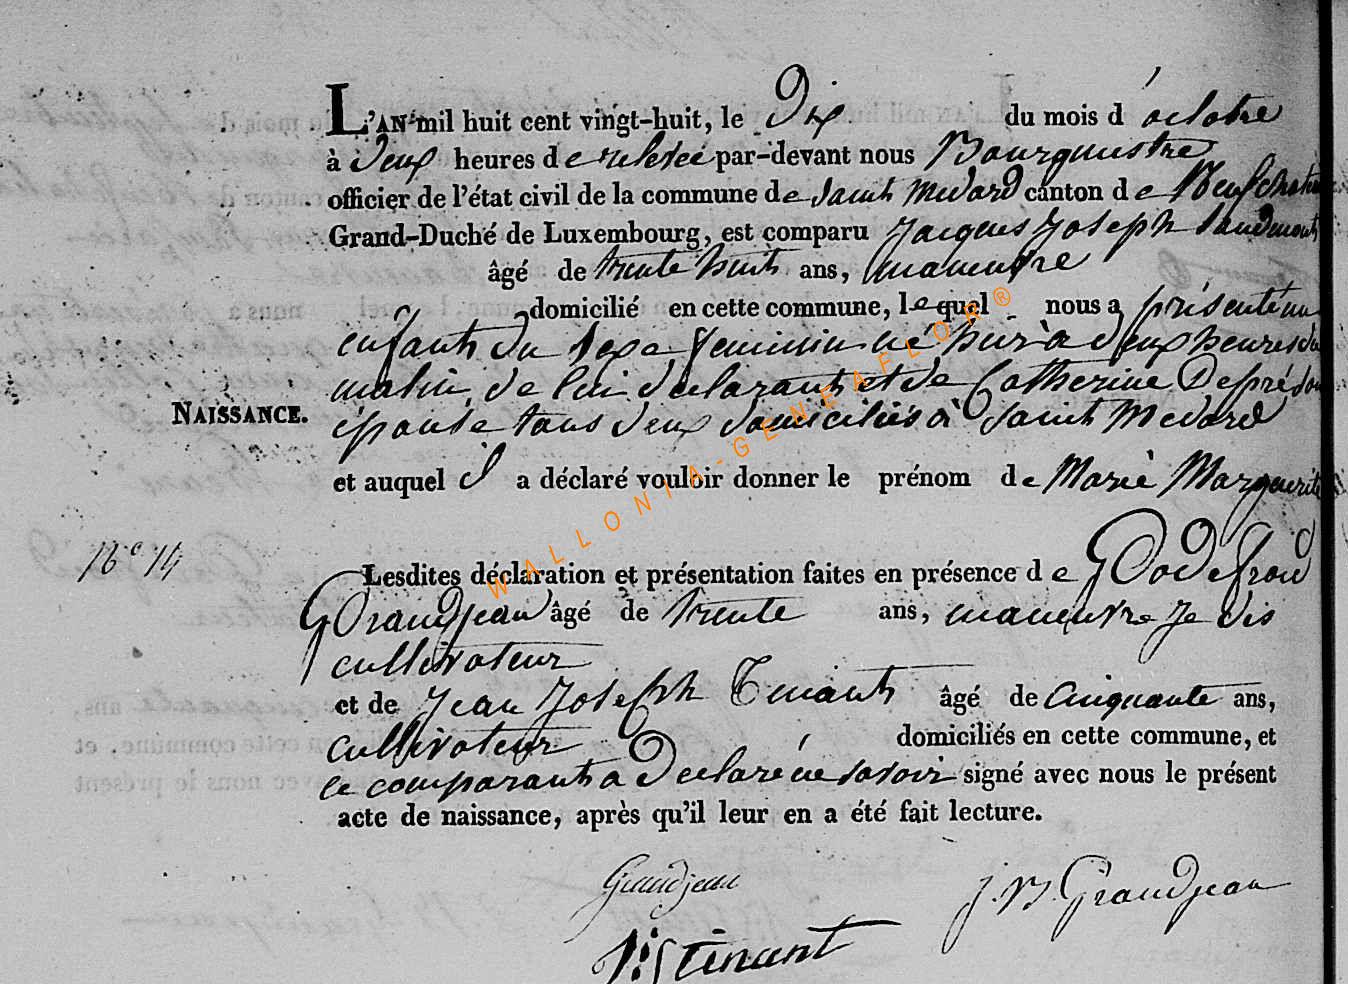 L'AN mil huit cent vingt-huit, le Dix du mois d'octobre
à Deux heures de relevée par-devant nous Bourguestre
officier de l'état civil de la commune de Saint Medard canton de Neufchateau
Grand-Duché de Luxembourg, est comparu Jacques Joseph
âgé de trente huit ans, maneuvre
domicilié en cette commune, lequel nous a présenté un
enfant du sexe feminin né hier à deux heures du
matin, de lui declarant et de Catherine Despré son
épouse tous deux domiciliés à Saint Medard
NAISSANCE.
et auquel il a déclaré vouloir donner le prénom de Marie Marguerite
N° 14
Lesdites déclaration et présentation faites en présence de Godefroid
Grandjean âgé de trente ans, maneuvre je dis
cultivateur
et de Jean Joseph Tinant âgé de Cinquante ans,
cultivateur domiciliés en cette commune, et
le comparant a declaré ne savoir signé avec nous le présent
acte de naissance, après qu'il leur en a été fait lecture.
Grandjean J. B. Grandjean
Tinant
WALLONIA-GENEAFLOR®